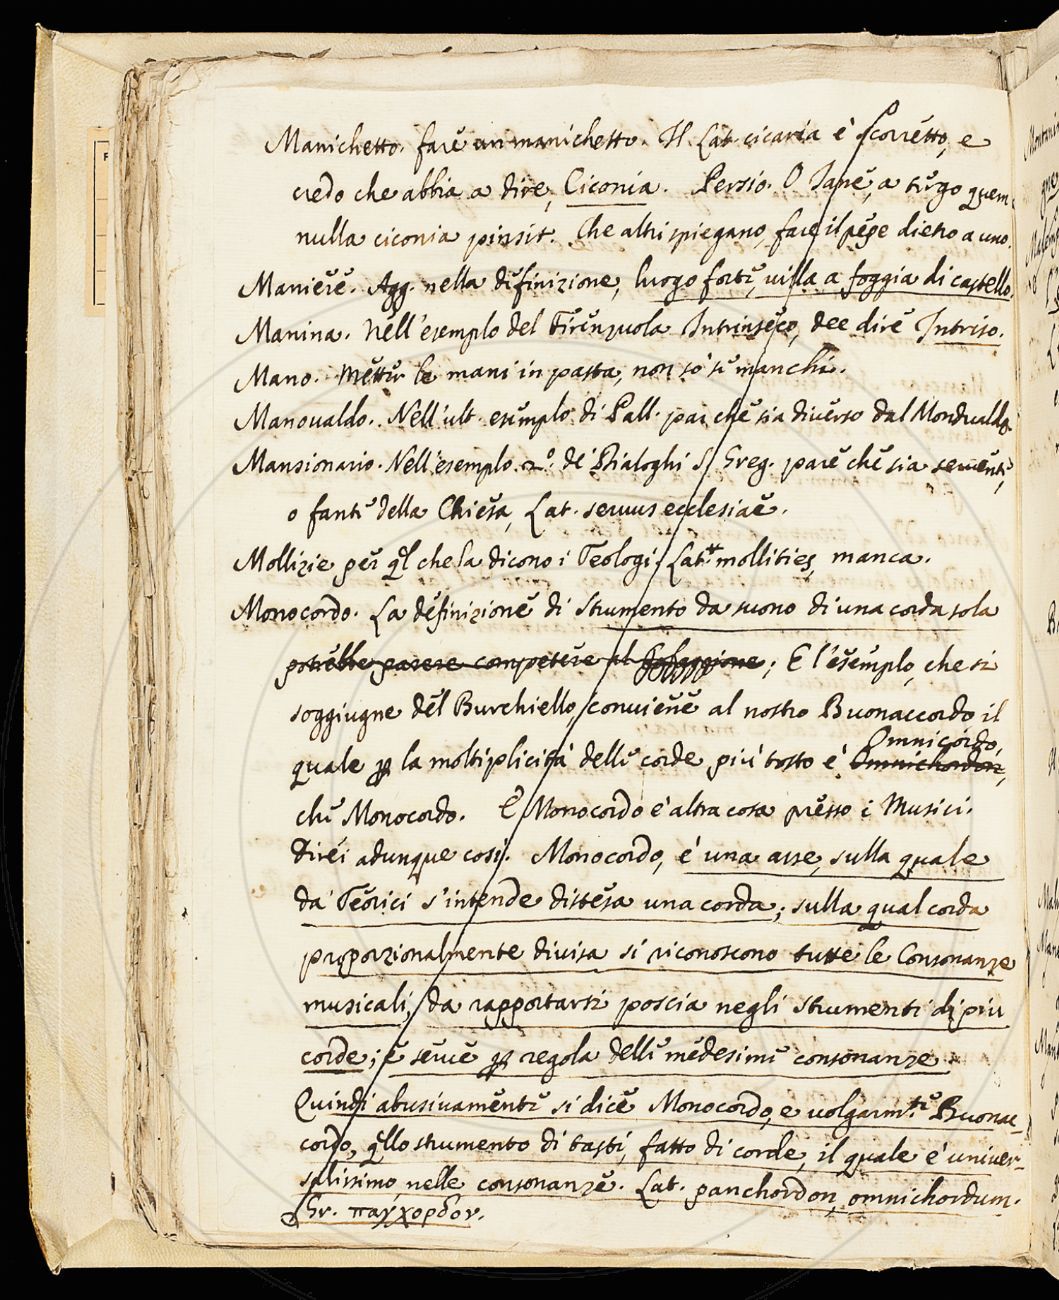 Manichetto. fare un manichetto. Il Lat. cicaria è scorretto, e
credo che abbia a dire, Ciconia. Persio. O Iane, a tergo quem
nulla ciconia pinsit. Che altri spiegano, fare il pepe dietro a uno.
Maniere. Agg. nella difinizione, luogo forte, villa a foggia di castello.
Manina. Nell'esemplo del Firenzuola Intrinseco, dee dire Intriso.
Mano. Metter le mani in pasta, non so se manchi.
Manovaldo. Nell'ult. esemplo di Pall. par che sia diverso dal Mondualdo.
Mansionario. Nell'esemplo 2.º de' Dialoghi S. Greg. pare che sia servente,
o fante della Chiesa, Lat. servus ecclesiae.
Mollizie per ql che la dicono i Teologi Lat.te mollities, manca.
Monocordo. La definizione di strumento da suono di una corda sola
potrebbe parere competere al ; E l'esemplo, che si
soggiugne del Burchiello, conviene al nostro Buonaccordo il
Omnicordo,
quale p la moltiplicità delle corde più tosto è Omnichordon,
che Monocordo. E Monocordo è altra cosa presso i Musici.
Direi adunque così. Monocordo, è una asse, sulla quale
da' Teorici s'intende distesa una corda; sulla qual corda
proporzionalmente divisa si riconoscono tutte le Consonanze
musicali, da rapportarsi poscia negli strumenti di più
corde; e serve p regola delle medesime consonanze.
Quindi abusivamente si dice Monocordo, e volgarm.te Buonac
cordo, qllo strumento di tasti, fatto di corde, il quale è univer-
salissimo nelle consonanze. Lat. panchordon, omnichordum.
Gr. παγχορδον.